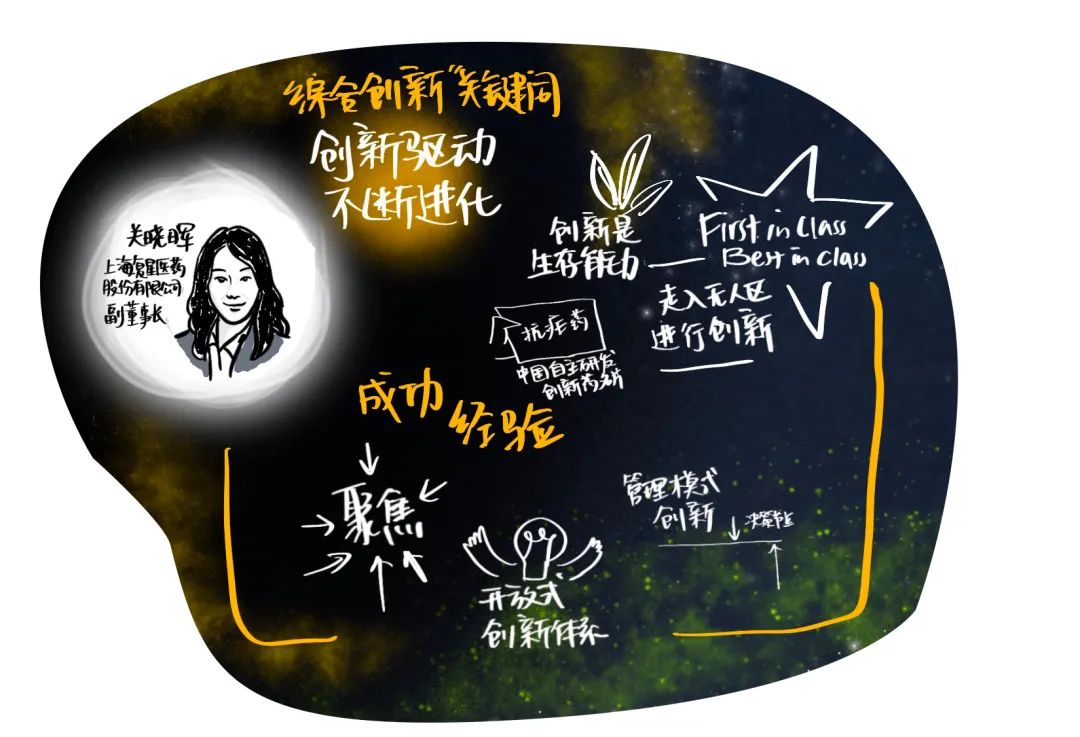 综合创新"关键词
创新驱动
不断进化
关晓晖
上海复星医药
股份有限公司
副董事长
创新是
生存能力
First in Class
Best in class
走入无人区
进行创新
抗疟药
中国自主研发
创新药名片
成功
经验
聚焦
开放式
创新体系
管理模式
创新